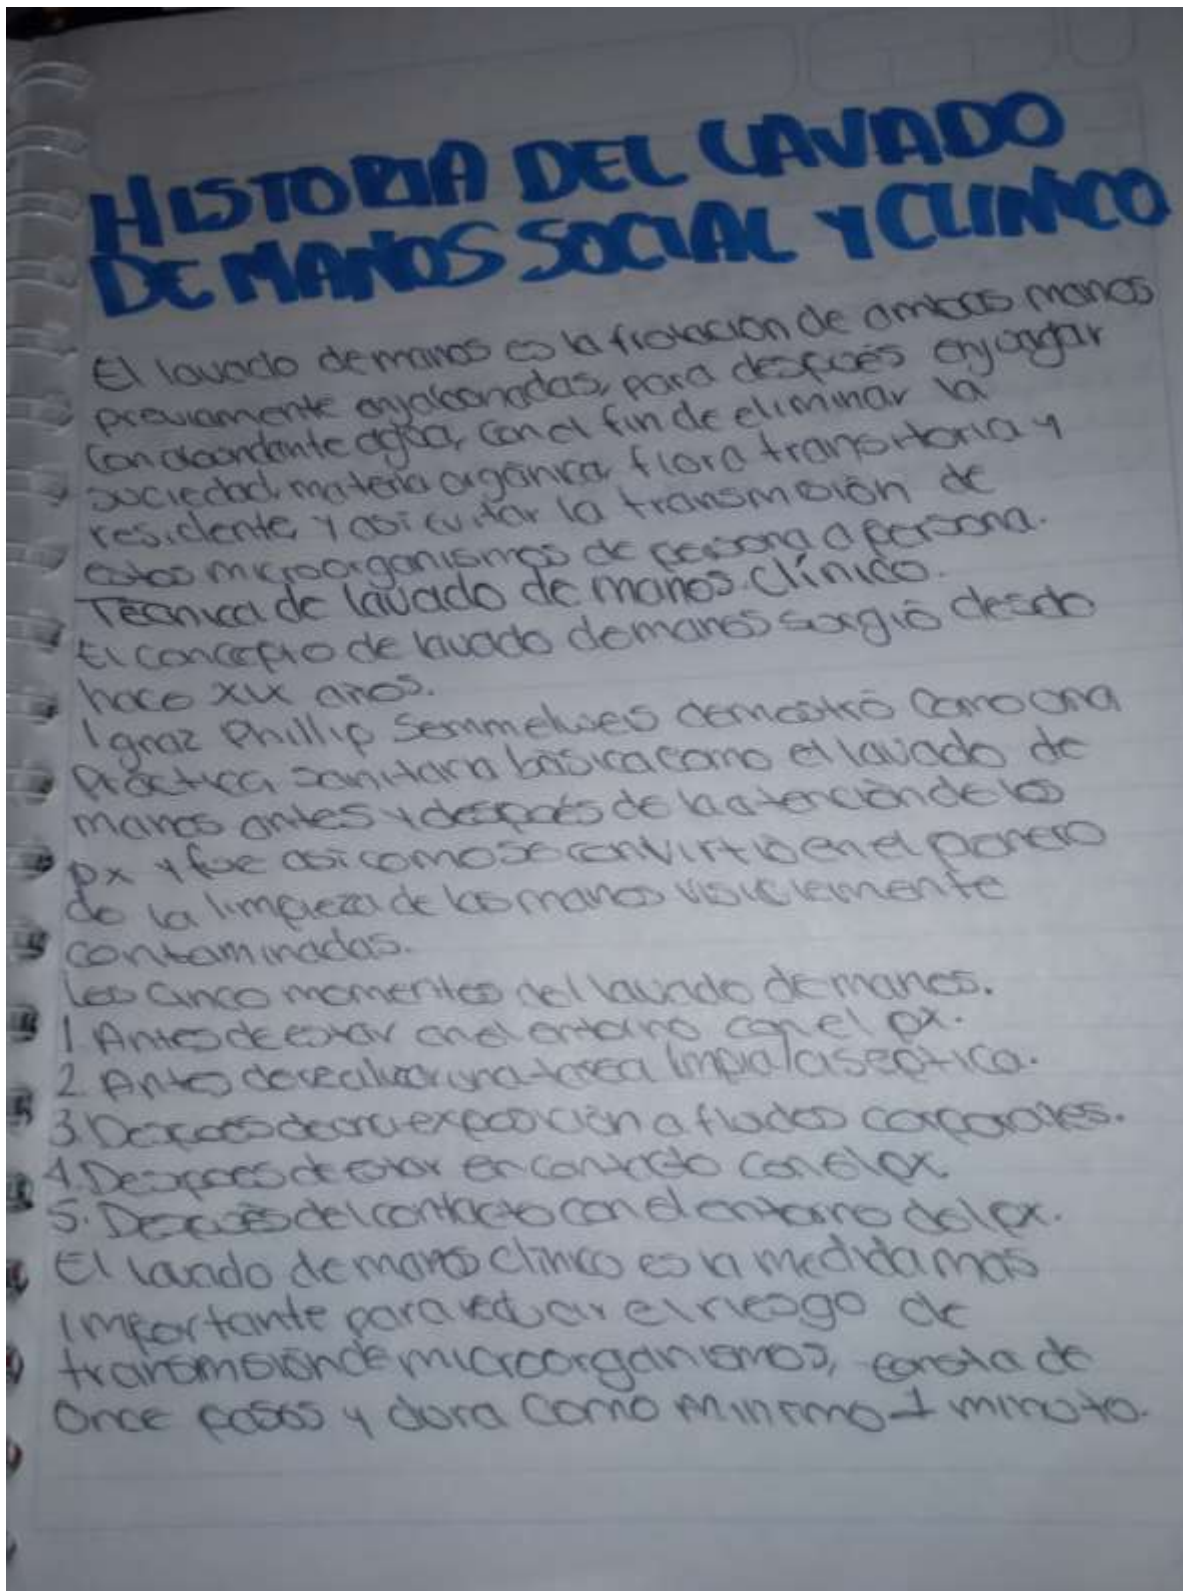 HISTORIA DEL LAVADO
DE MANOS SOCIAL Y CLINICO
El lavado de manos es la frotación de ambas manos
previamente enjabonadas, para después enjuagar
con abundante agua, con el fin de eliminar la
suciedad, materia orgánica, flora transitoria y
residente y asi evitar la transmisión de
estos microorganismos de persona a persona.
Técnica de lavado de manos clínico.
El concepto de lavado de manos surgió desde
hace XIX años.
Ignaz Phillip Semmelweis demostró como una
práctica sanitaria básica como el lavado de
manos antes y después de la atención de los
px y fue asi como se convirtio en el pionero
de la limpieza de las manos visiblemente
contaminadas.
Los cinco momentos del lavado de manos.
1. Antes de estar en el entorno con el px.
2. Antes de realizar una tarea limpia/aseptica.
3. Después de una exposición a fluidos corporales.
4. Despues de estar en contacto con el px
5. Después del contacto con el entorno del px.
El lavado de manos clínico es la medida mas
importante para reducir el riesgo de
transmisión de microorganismos, consta de
once pasos y dura como minimo 1 minuto.